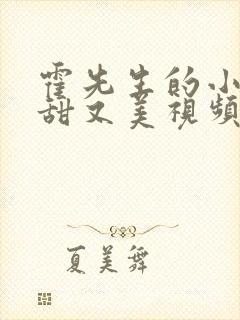 霍先生的小
甜又美視頻
夏美舞